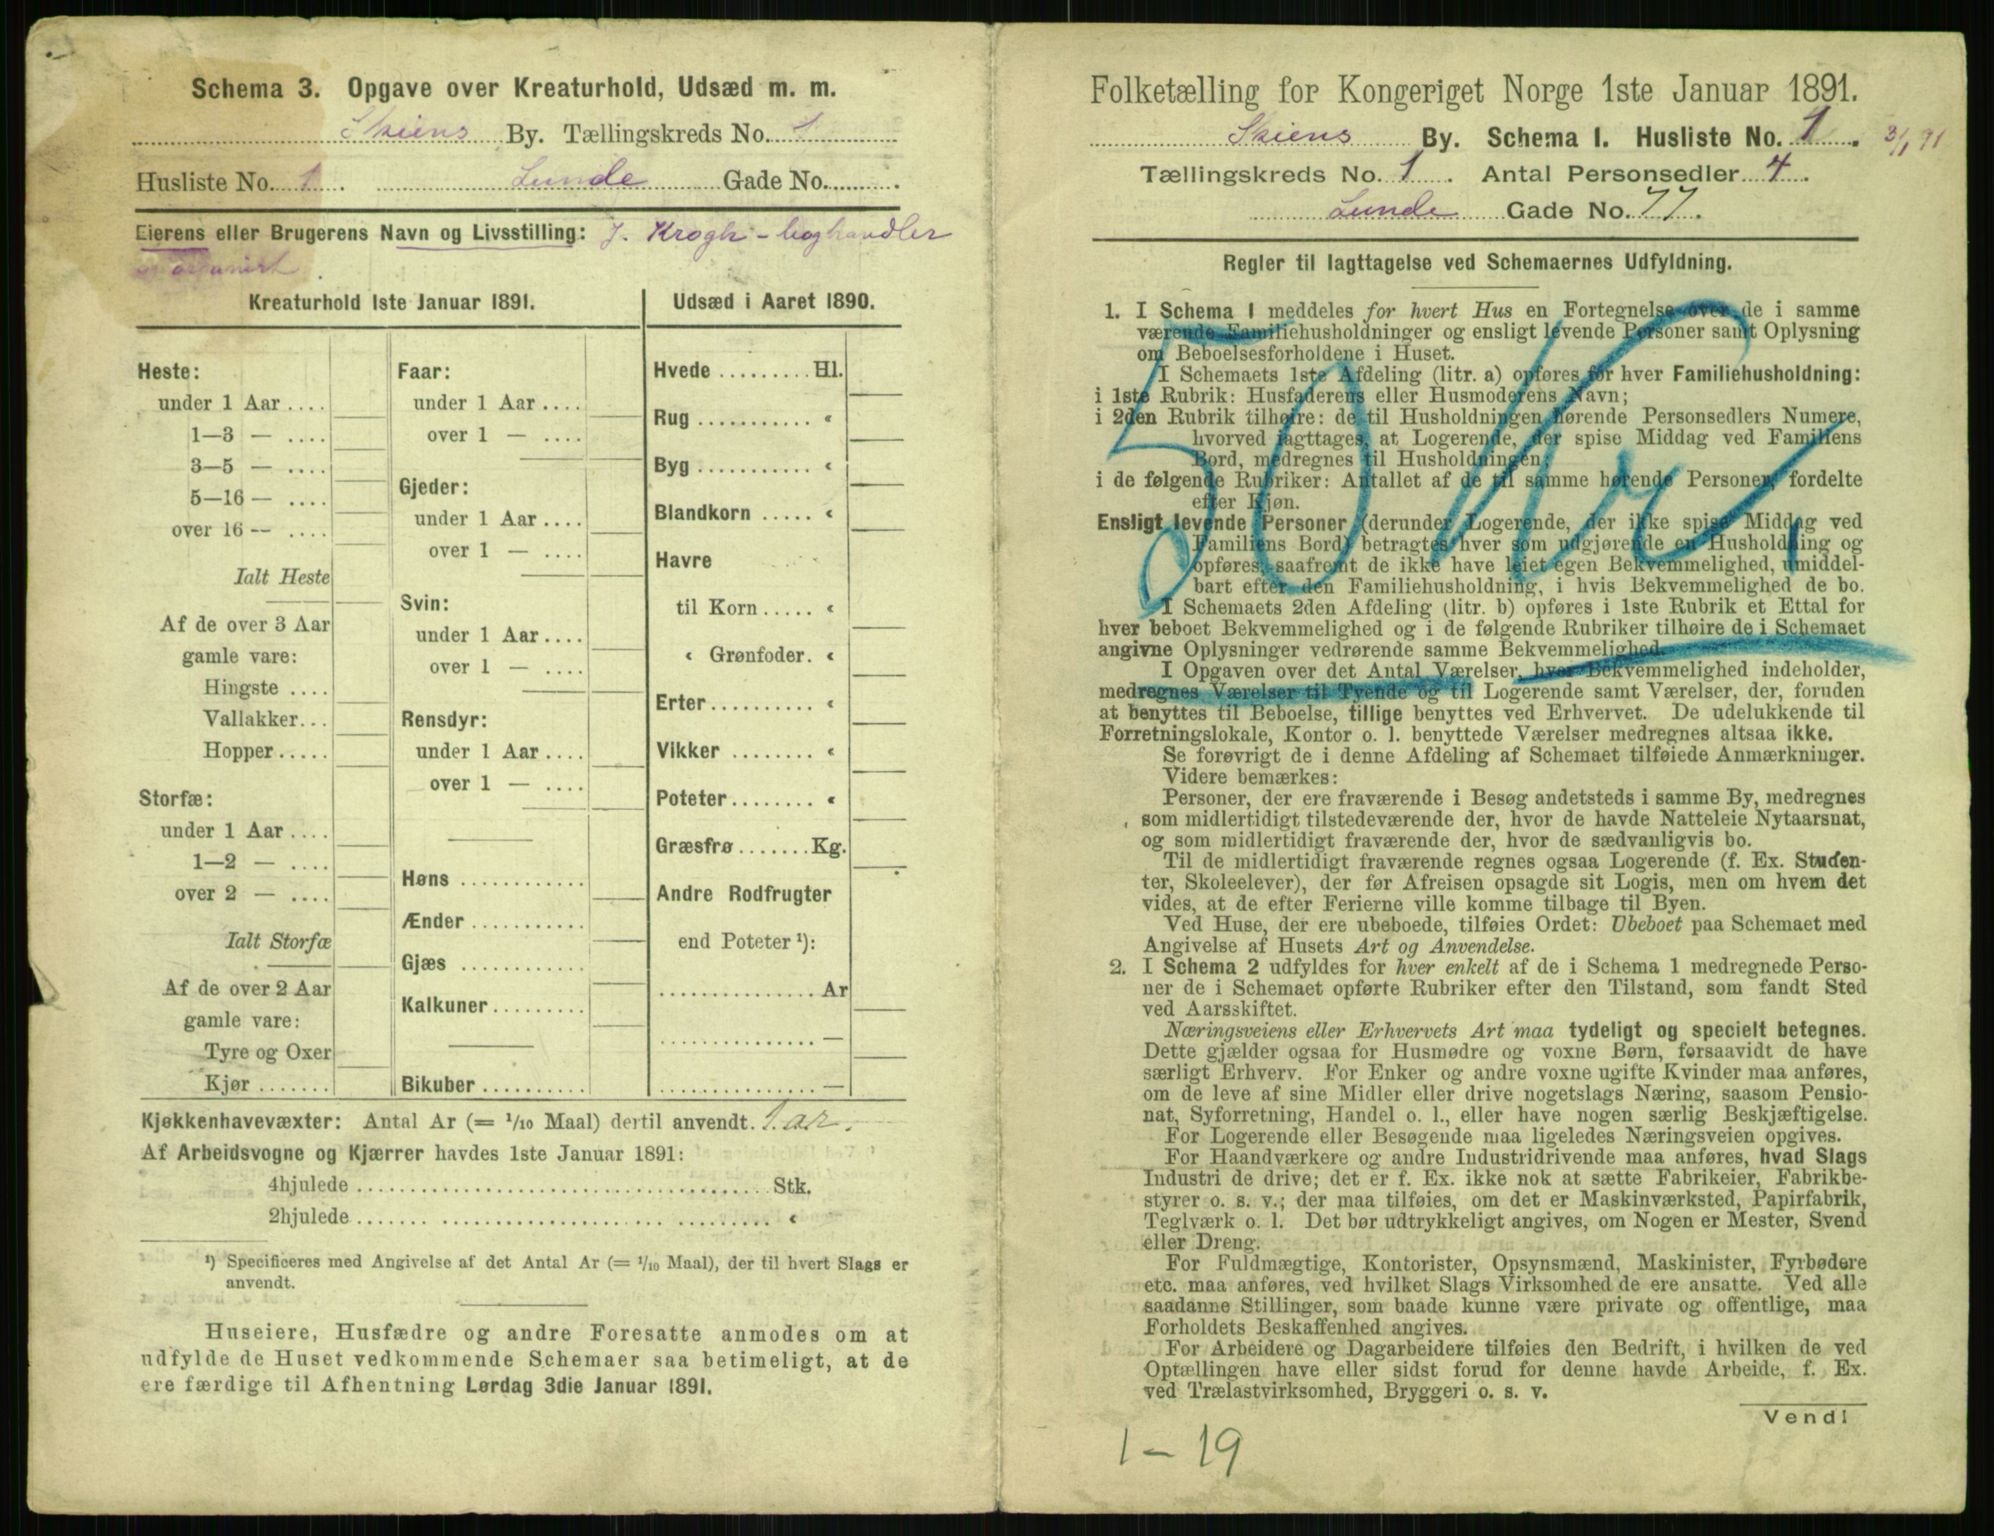 Schema 3. Opgave over Kreaturhold, Udsæd m. m.
Skiens By. Tællingskreds No. 1
Husliste No. 1. Lunde Gade No.
Eierens eller Brugerens Navn og Livsstilling: J. Krogh - boghandler
og organist.
Kreaturhold 1ste Januar 1891.
Heste:
under 1 Aar
1—3 —
3—5 —
5—16 —
over 16 —
Ialt Heste
Af de over 3 Aar
gamle vare:
Hingste
Vallakker
Hopper
Storfæ:
under 1 Aar
1—2 —
over 2 —
Ialt Storfæ
Af de over 2 Aar
gamle vare:
Tyre og Oxer
Kjør
Faar:
under 1 Aar
over 1 —
Gjeder:
under 1 Aar
over 1 —
Svin:
under 1 Aar
over 1 —
Rensdyr:
under 1 Aar
over 1 —
Høns
Ænder
Gjæs
Kalkuner
Bikuber
Udsæd i Aaret 1890.
Hvede Hl.
Rug «
Byg «
Blandkorn «
Havre
til Korn «
« Grønfoder. «
Erter «
Vikker «
Poteter «
Græsfrø Kg.
Andre Rodfrugter
end Poteter ¹):
Ar
—
—
Kjøkkenhavevæxter: Antal Ar (= 1/10 Maal) dertil anvendt. 1 ar.
Af Arbeidsvogne og Kjærrer havdes 1ste Januar 1891:
4hjulede Stk.
2hjulede «
¹) Specificeres med Angivelse af det Antal Ar (= 1/10 Maal), der til hvert Slags er
anvendt.
Huseiere, Husfædre og andre Foresatte anmodes om at
udfylde de Huset vedkommende Schemaer saa betimeligt, at de
ere færdige til Afhentning Lørdag 3die Januar 1891.
Folketælling for Kongeriget Norge 1ste Januar 1891.
Skiens By. Schema I. Husliste No. 1. 3/1 91
Tællingskreds No. 1. Antal Personsedler 4.
Lunde Gade No. 77.
Regler til Iagttagelse ved Schemaernes Udfyldning.
50 Kr.
1. I Schema 1 meddeles for hvert Hus en Fortegnelse over de i samme
værende Familiehusholdninger og ensligt levende Personer samt Oplysning
om Beboelsesforholdene i Huset.
I Schemaets 1ste Afdeling (litr. a) opføres for hver Familiehusholdning:
i 1ste Rubrik: Husfaderens eller Husmoderens Navn;
i 2den Rubrik tilhøire: de til Husholdningen hørende Personsedlers Numere,
hvorved iagttages, at Logerende, der spise Middag ved Familiens
Bord, medregnes til Husholdningen;
i de følgende Rubriker: Antallet af de til samme hørende Personer, fordelte
efter Kjøn.
Ensligt levende Personer (derunder Logerende, der ikke spise Middag ved
Familiens Bord) betragtes hver som udgjørende en Husholdning og
opføres, saafremt de ikke have leiet egen Bekvemmelighed, umiddel-
bart efter den Familiehusholdning, i hvis Bekvemmelighed de bo.
I Schemaets 2den Afdeling (litr. b) opføres i 1ste Rubrik et Ettal for
hver beboet Bekvemmelighed og i de følgende Rubriker tilhøire de i Schemaet
angivne Oplysninger vedrørende samme Bekvemmelighed.
I Opgaven over det Antal Værelser, hver Bekvemmelighed indeholder,
medregnes Værelser til Tyende og til Logerende samt Værelser, der, foruden
at benyttes til Beboelse, tillige benyttes ved Erhvervet. De udelukkende til
Forretningslokale, Kontor o. l. benyttede Værelser medregnes altsaa ikke.
Se forøvrigt de i denne Afdeling af Schemaet tilføiede Anmærkninger.
Videre bemærkes:
Personer, der ere fraværende i Besøg andetsteds i samme By, medregnes
som midlertidigt tilstedeværende der, hvor de havde Natteleie Nytaarsnat,
og som midlertidigt fraværende der, hvor de sædvanligvis bo.
Til de midlertidigt fraværende regnes ogsaa Logerende (f. Ex. Studen-
ter, Skoleelever), der før Afreisen opsagde sit Logis, men om hvem det
vides, at de efter Ferierne ville komme tilbage til Byen.
Ved Huse, der ere ubeboede, tilføies Ordet: Ubeboet paa Schemaet med
Angivelse af Husets Art og Anvendelse.
2. I Schema 2 udfyldes for hver enkelt af de i Schema 1 medregnede Perso-
ner de i Schemaet opførte Rubriker efter den Tilstand, som fandt Sted
ved Aarsskiftet.
Næringsveiens eller Erhvervets Art maa tydeligt og specielt betegnes.
Dette gjælder ogsaa for Husmødre og voxne Børn, forsaavidt de have
særligt Erhverv. For Enker og andre voxne ugifte Kvinder maa anføres,
om de leve af sine Midler eller drive nogetslags Næring, saasom Pensio-
nat, Syforretning, Handel o. l., eller have nogen særlig Beskjæftigelse.
For Logerende eller Besøgende maa ligeledes Næringsveien opgives.
For Haandværkere og andre Industridrivende maa anføres, hvad Slags
Industri de drive; det er f. Ex. ikke nok at sætte Fabrikeier, Fabrikbe-
styrer o. s. v.; der maa tilføies, om det er Maskinværksted, Papirfabrik,
Teglværk o. l. Det bør udtrykkeligt angives, om Nogen er Mester, Svend
eller Dreng.
For Fuldmægtige, Kontorister, Opsynsmænd, Maskinister, Fyrbødere
etc. maa anføres, ved hvilket Slags Virksomhed de ere ansatte. Ved alle
saadanne Stillinger, som baade kunne være private og offentlige, maa
Forholdets Beskaffenhed angives.
For Arbeidere og Dagarbeidere tilføies den Bedrift, i hvilken de ved
Optællingen have eller sidst forud for denne havde Arbeide, f. Ex.
ved Trælastvirksomhed, Bryggeri o. s. v.
Vend!
1 - 19